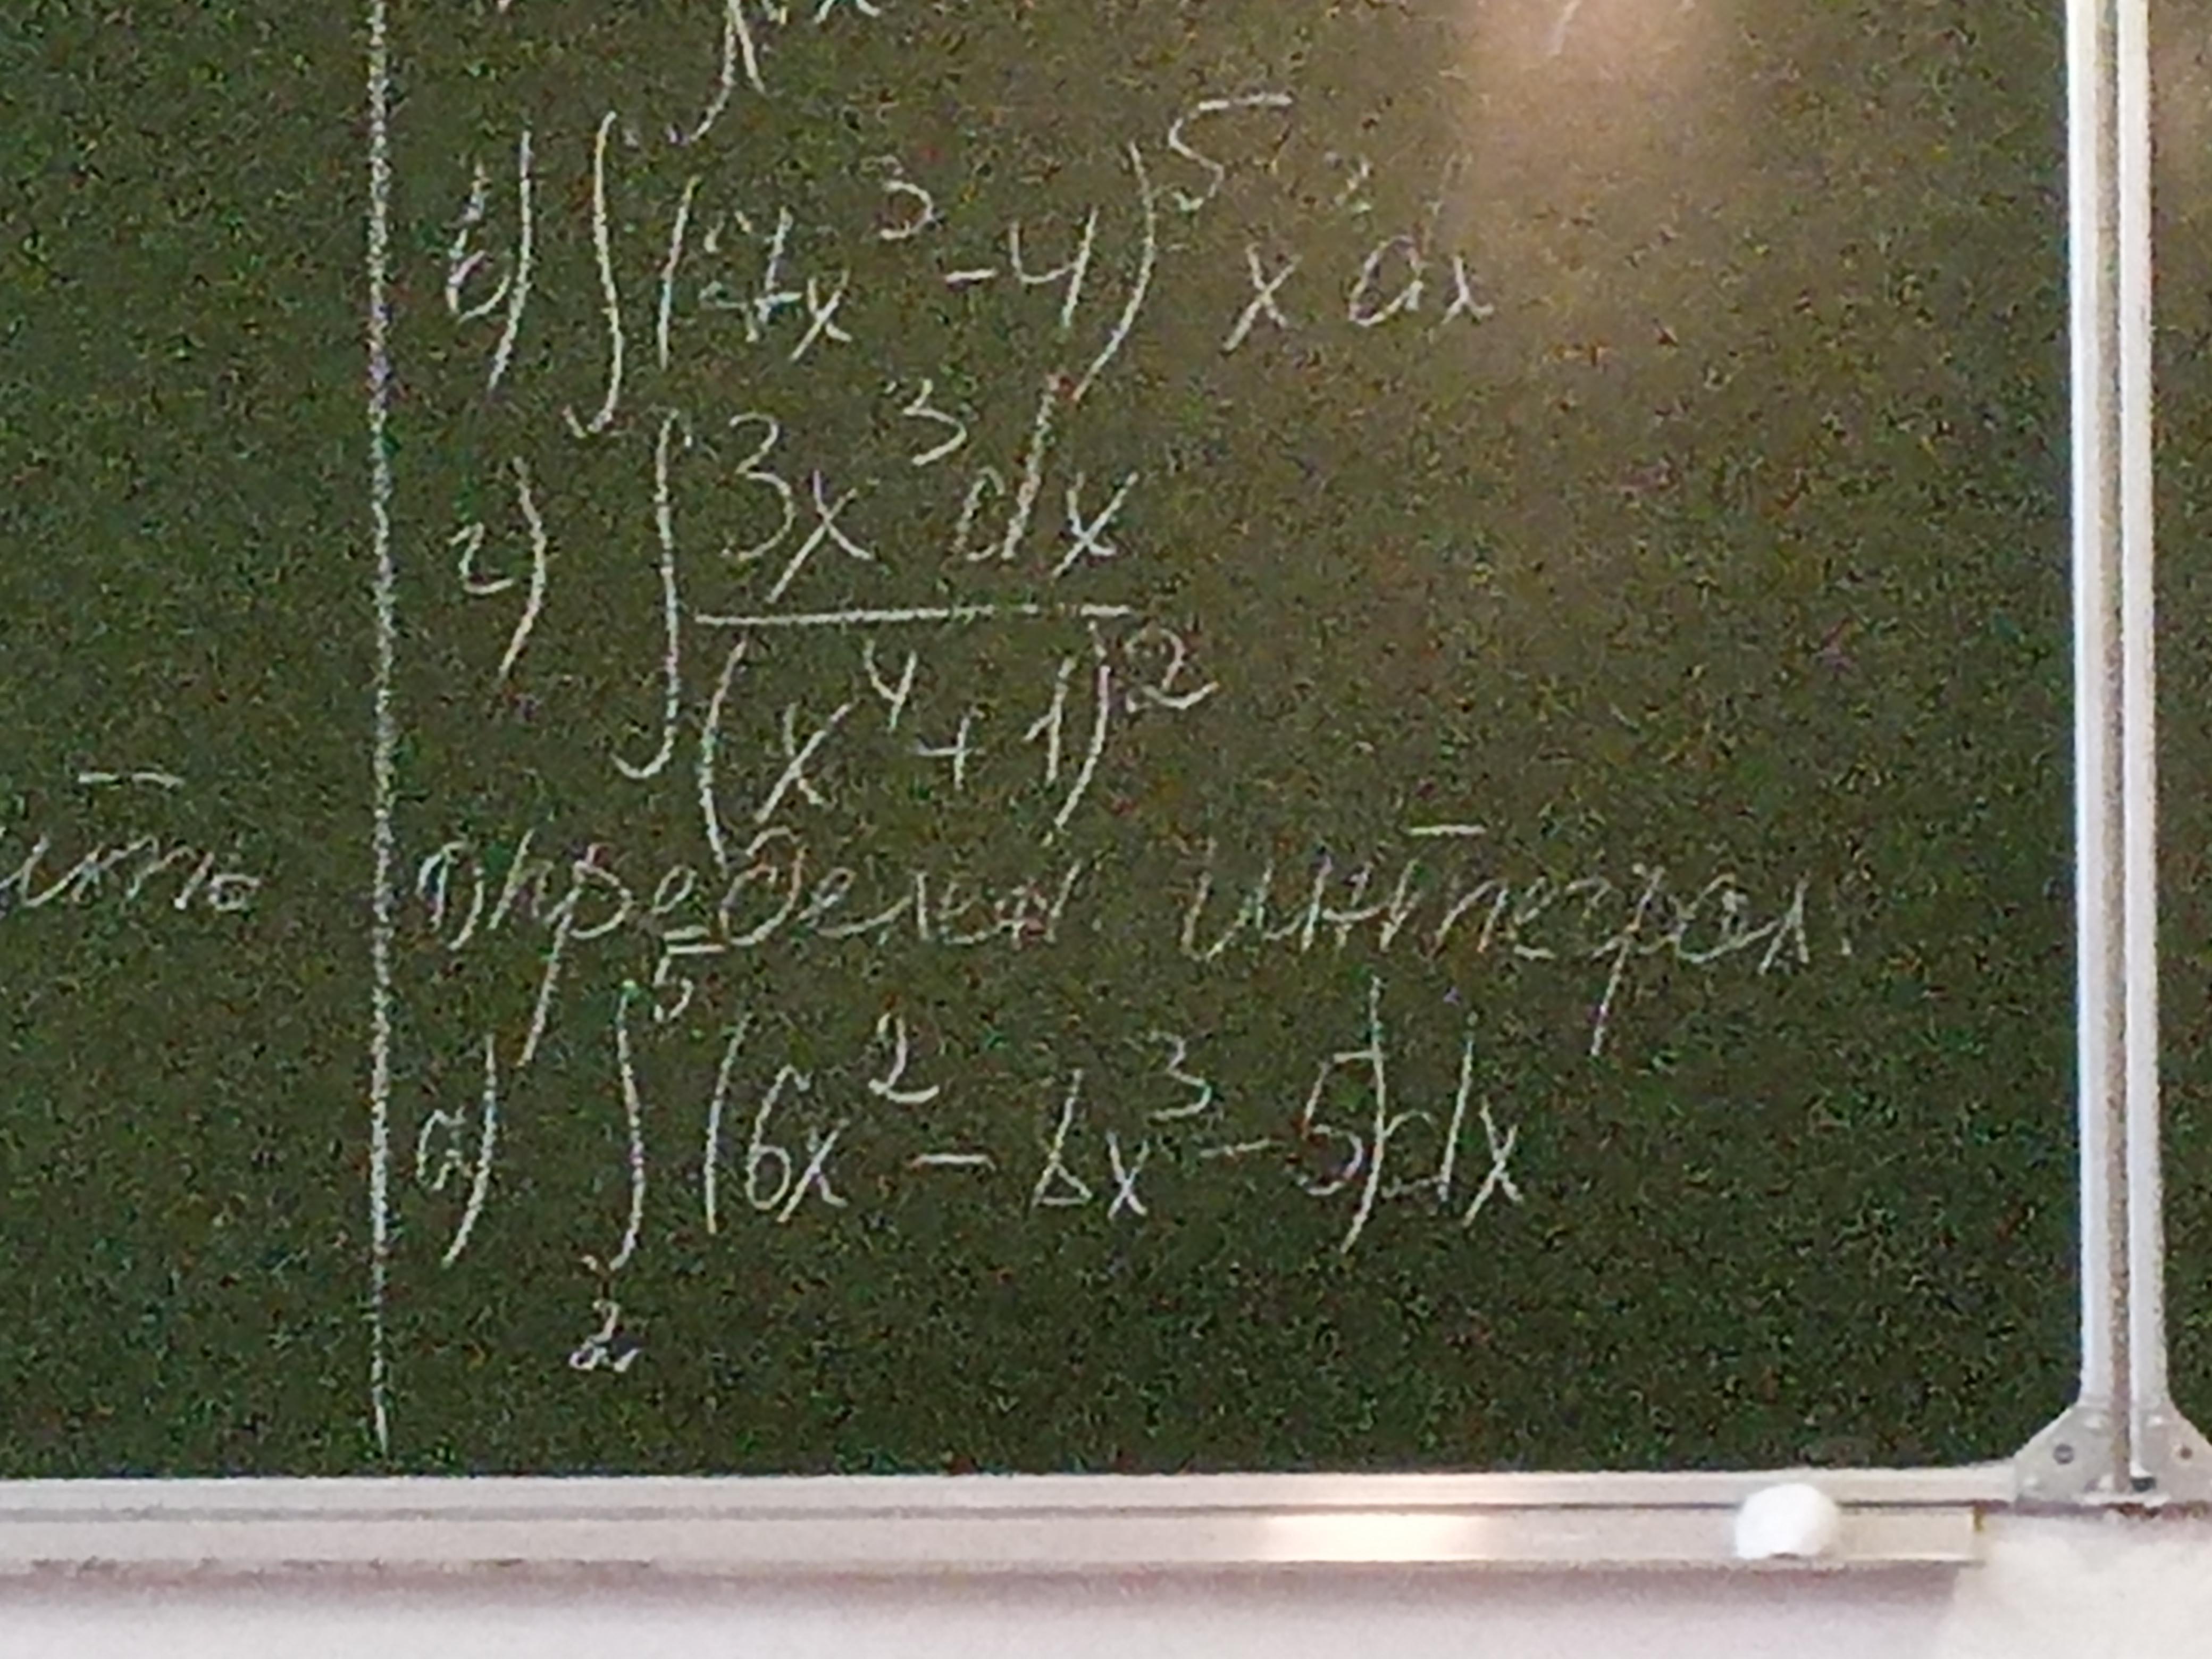 в) ∫(7x³-4)⁵x²dx
г) ∫ 3x³dx
(x⁴+1)²
Определен интеграл.
а) ∫₂⁵(6x²-2x³-5)dx